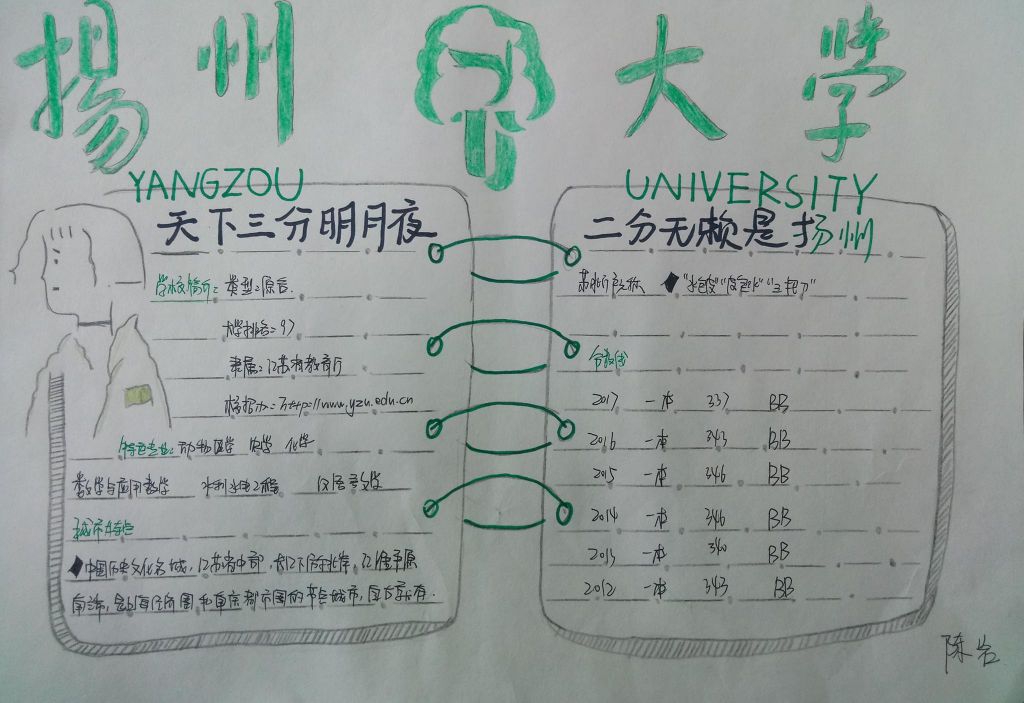 揚州大学
YANGZOU UNIVERSITY
天下三分明月夜
学校简介: 类型:综合.
大学排名:97
隶属:江苏省教育厅
校招办:http://www.yzu.edu.cn
特色专业: 动物医学 农学 化学
数学与应用数学 水利水电工程 汉语言文学
城市特色
◆中国历史文化名城,江苏省中部,长江下游北岸,江淮平原
南端,是上海经济圈和南京都市圈的节点城市,
二分无赖是扬州
◆"水包皮""皮包水""三把刀"
分数线
2017 一本 337 BB
2016 一本 343 BB
2015 一本 346 BB
2014 一本 346 BB
2013 一本 340 BB
2012 一本 343 BB